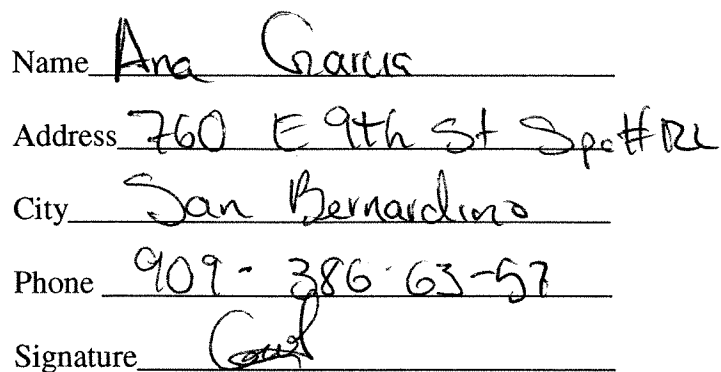 Name Ana Garcia
Address 760 E 9th St Spc#
City San Bernardino
Phone 909-386-63-57
Signature